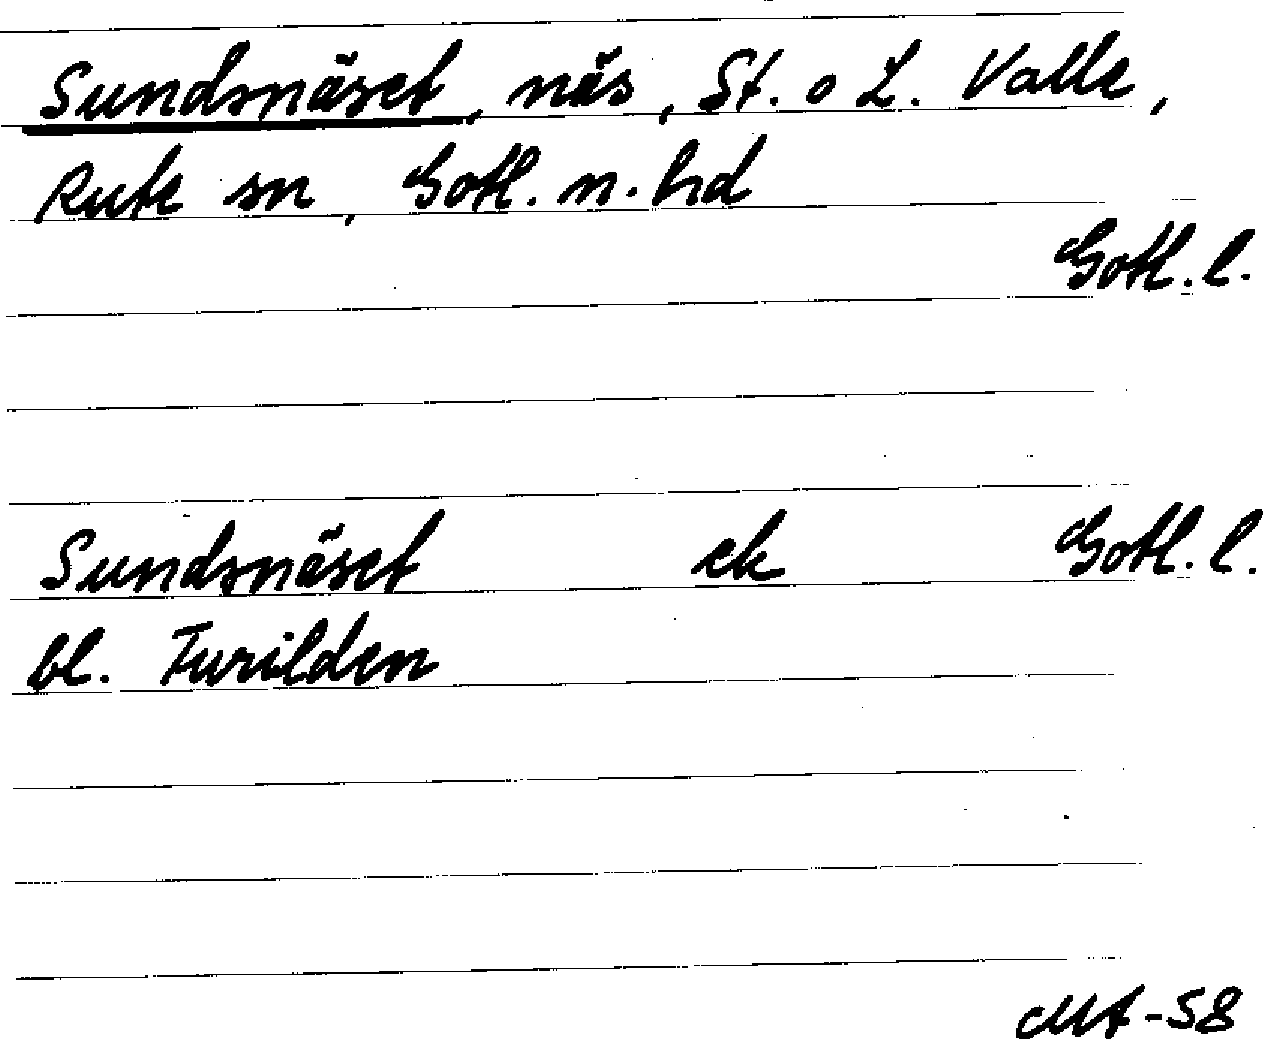 Sundsnäset, näs, St. o L. Valle,
Rute sn, Gotl. n. hd
Gotl. l.
Sundsnäset ek Gotl. l.
bl. Furilden
MA-58